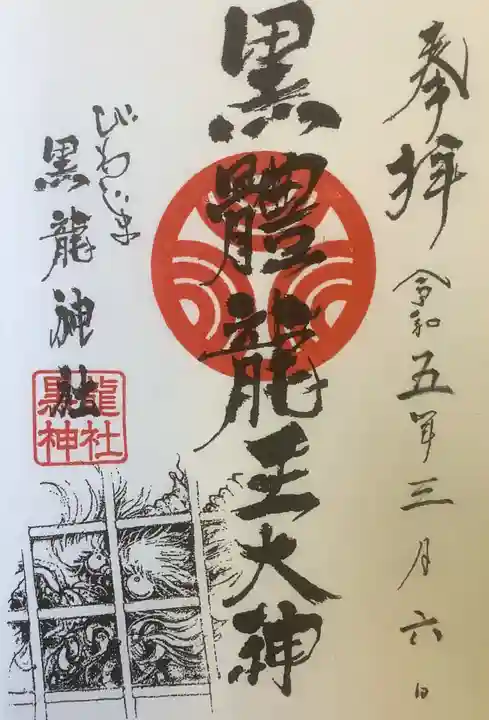 奉拝
令和五年三月六日
黒體龍王大神
びわじま
黒龍神社
黒龍
神社